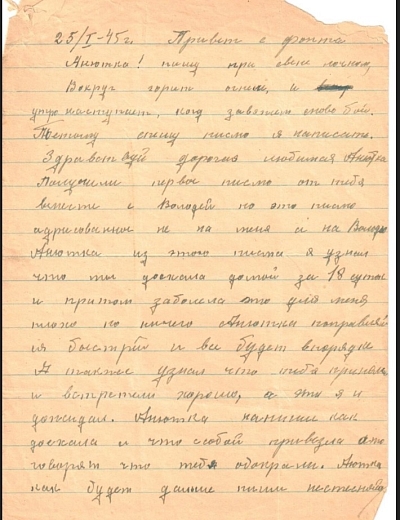 25/I-45г. Привет с фронта
Анютка! пишу при свече ночью,
Вокруг горит огнем, и
утро наступает, когд завязано снова бой.
Потому спешу писмо я написать.
Здравствуй дорогая любимая Анютка
Получили первое писмо от тебя
вместе с Володей но это писмо
адрисованное не на меня а на Володю
Анютка из этого писма я узнал
что ты доехала домой за 18 суток
и притом заболела это для меня
плохо но ничего Анютка поправляй
ся быстрей и все будет впорядке
А также узнал что тебя приняли
и встретили хорошо, а это я и
дожидал. Анютка напиши как
доехала и что с собой привезла а то
говорят что тебя обокрали. Анютка
как будет дальше пиши нестесняйс